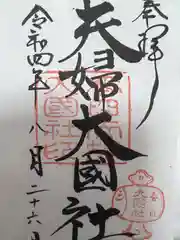 奉拝
夫婦大國社
令和四年八月二十六日